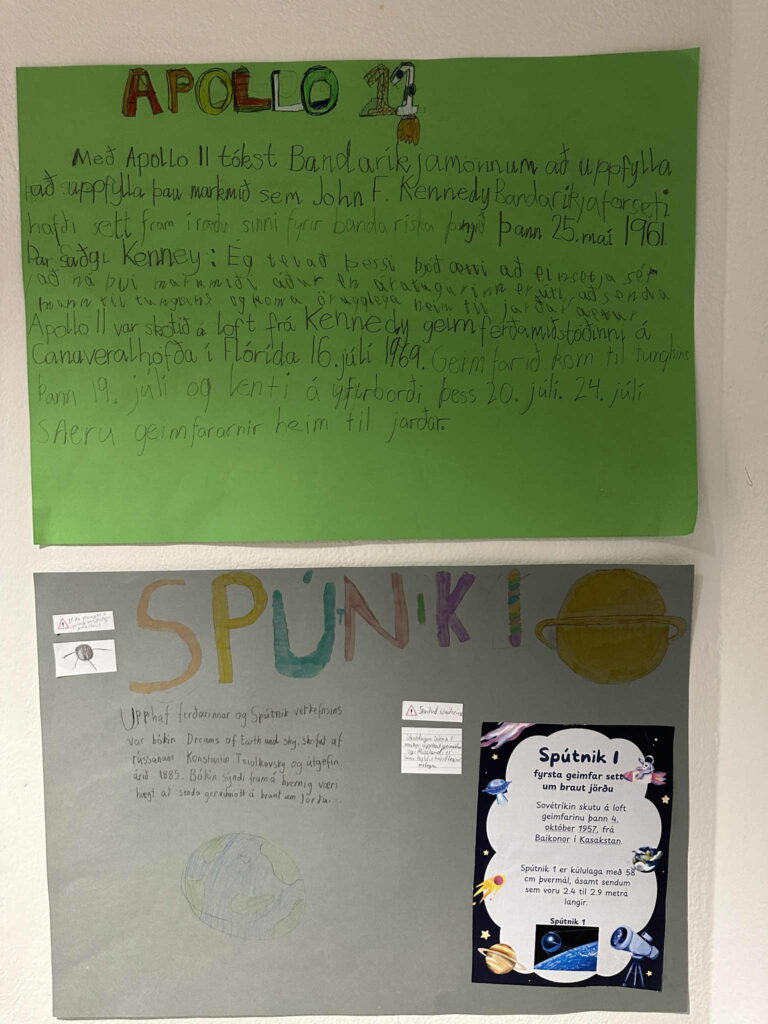 APOLLO 11
Með Apollo 11 tókst Bandaríkjamönnum að uppfylla
að uppfylla þau markmið sem John F. Kennedy Bandaríkjaforseti
hafði sett fram í ræðu sinni fyrir bandaríska þingið þann 25. maí 1961.
Þar sagði Kenney: Ég tel að þessi þjóð ætti að einsetja sér
að ná því markmiði áður en áratugurinn er úti, að senda
mann til tunglsins og koma örugglega heim til jarðar aftur
Apollo 11 var skotið á loft frá Kennedy geimferðamiðstöðinni á
Canaveralhöfða í Flórída 16. júlí 1969. Geimfarið kom til tunglsins
þann 19. júlí og lenti á yfirborði þess 20. júlí. 24. júlí
geimfararnir heim til jarðar.
SPÚTNIK 1
Upphaf ferðarinnar og Spútnik verkefnsins
var bókin Dreams of Earth and sky, skrifuð af
rússanum Konstantin Tsiolkovsky og útgefin
árið 1885. Bókin sýndi fram á hvernig væri
hægt að senda gervihnött á braut um Jörðu...
Spútnik 1
fyrsta geimfar sett
um braut jörðu
Sovétríkin skutu á loft
geimfarinu þann 4.
október 1957, frá
Baikonor í Kasakstan.
Spútnik 1 er kúlulaga með 58
cm þvermál, ásamt sendum
sem voru 2.4 til 2.9 metra
langir.
Spútnik 1